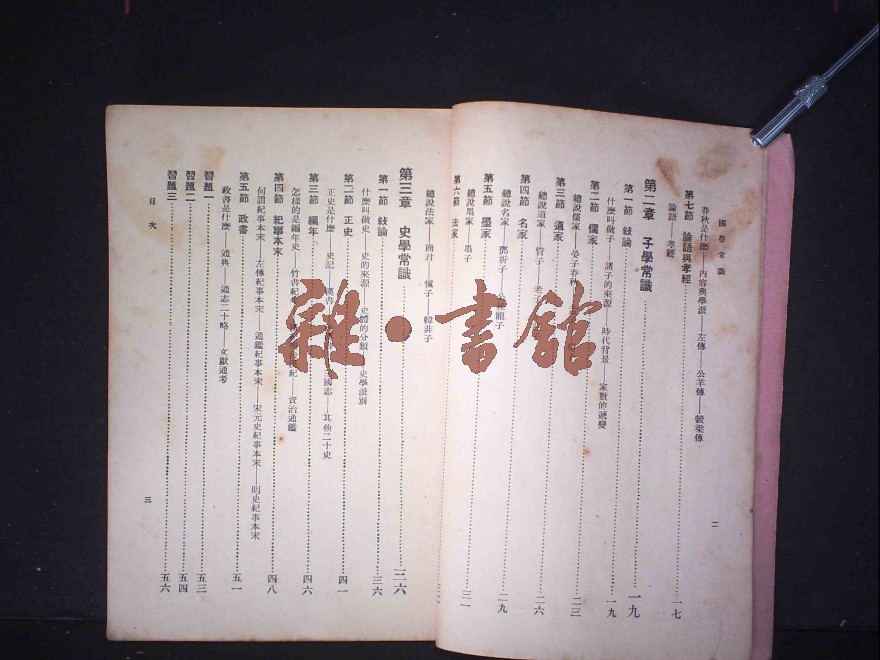 國學常識
二
春秋是什麽——內容與學派——左傳——公羊傳——穀梁傳
第七節 論語與孝經……一七
論語——孝經
第二章 子學常識……一九
第一節 敍論……一九
什麽叫做子 諸子的來源 時代背景——家數的遞變
第二節 儒家……二三
總說儒家——晏子春秋
第三節 道家……二六
總說道家——管子——老子
第四節 名家……二九
總說名家——鄧析子 龍子
第五節 墨家……三一
總說墨家——墨子
第六節 法家
總說法家——商君——愼子——韓非子
第三章 史學常識……三六
第一節 敍論……三六
什麽叫做史——史的來源——史體的分類——史學派別
第二節 正史……四一
正史是什麽——史記——漢書 三國志——其他二十史
第三節 編年……四六
怎樣的是編年史——竹書紀年 紀——資治通鑑
第四節 紀事本末……四八
何謂紀事本末——左傳紀事本末——通鑑紀事本末——宋元史紀事本末——明史紀事本末
第五節 政書……五一
政書是什麽——通典——通志二十略——文獻通考
習題一……五三
習題二……五四
習題三……五六
目次
三
雜·書館